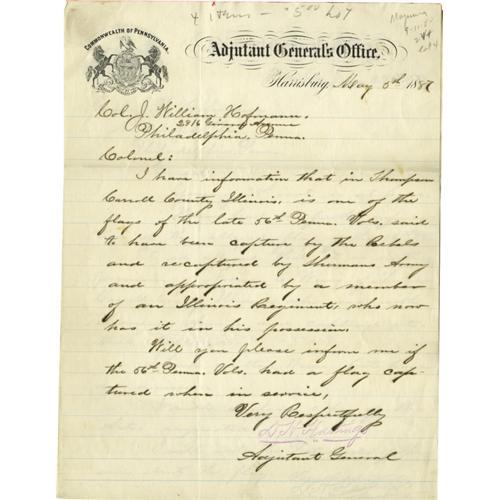 4 items - 5.00 lot
COMMONWEALTH OF PENNSYLVANIA.
Adjutant General's Office,
Harrisburg May 5th 1887
Col. J. William Hofmann,
2916 Girard Avenue
Philadelphia, Penna.
Colonel:
I have information that in Thompson
Carroll County, Illinois, is one of the
flags of the late 56th Penna. Vols. said
to have been capture by the Rebels
and recaptured by Shermans Army
and appropriated by a member
of an Illinois Regiment, who now
has it in his possession.
Will you please inform me if
the 56th Penna. Vols. had a flag cap-
tured when in service,
Very Respectfully
D. H. Hastings
Adjutant General